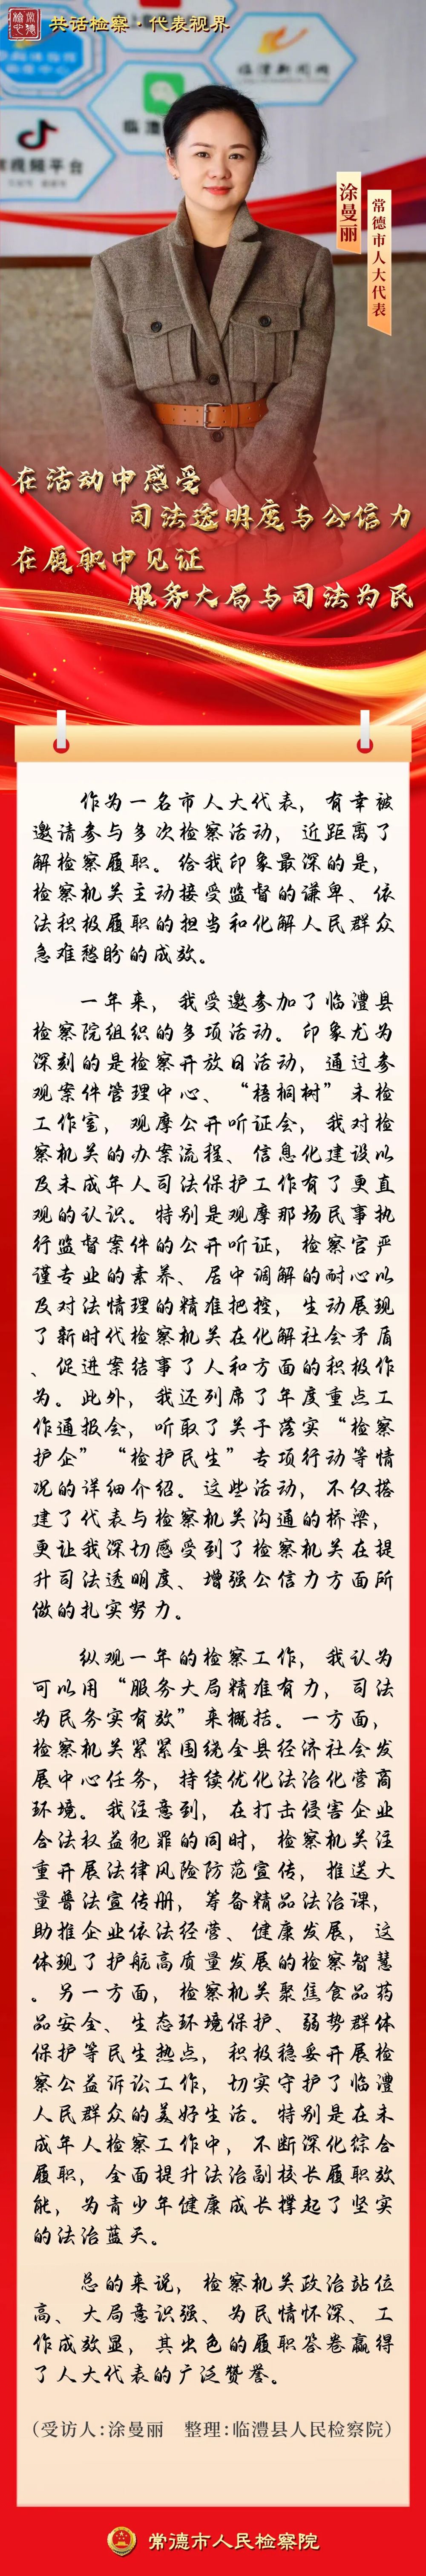 常德检心
共话检察·代表视界
临澧新闻网
临澧
视频平台
涂曼丽
常德市人大代表
在活动中感受
司法透明度与公信力
在履职中见证
服务大局与司法为民
作为一名市人大代表，有幸被
邀请参与多次检察活动，近距离了
解检察履职。给我印象最深的是，
检察机关主动接受监督的谦卑、依
法积极履职的担当和化解人民群众
急难愁盼的成效。
一年来，我受邀参加了临澧县
检察院组织的多项活动。印象尤为
深刻的是检察开放日活动，通过参
观案件管理中心、“梧桐树”未检
工作室，观摩公开听证会，我对检
察机关的办案流程、信息化建设以
及未成年人司法保护工作有了更直
观的认识。特别是观摩那场民事执
行监督案件的公开听证，检察官严
谨专业的素养、居中调解的耐心以
及对法情理的精准把控，生动展现
了新时代检察机关在化解社会矛盾
、促进案结事了人和方面的积极作
为。此外，我还列席了年度重点工
作通报会，听取了关于落实“检察
护企”“检护民生”专项行动等情
况的详细介绍。这些活动，不仅搭
建了代表与检察机关沟通的桥梁，
更让我深切感受到了检察机关在提
升司法透明度、增强公信力方面所
做的扎实努力。
纵观一年的检察工作，我认为
可以用“服务大局精准有力，司法
为民务实有效”来概括。一方面，
检察机关紧紧围绕全县经济社会发
展中心任务，持续优化法治化营商
环境。我注意到，在打击侵害企业
合法权益犯罪的同时，检察机关注
重开展法律风险防范宣传，推送大
量普法宣传册，筹备精品法治课，
助推企业依法经营、健康发展，这
体现了护航高质量发展的检察智慧
。另一方面，检察机关聚焦食品药
品安全、生态环境保护、弱势群体
保护等民生热点，积极稳妥开展检
察公益诉讼工作，切实守护了临澧
人民群众的美好生活。特别是在未
成年人检察工作中，不断深化综合
履职，全面提升法治副校长履职效
能，为青少年健康成长撑起了坚实
的法治蓝天。
总的来说，检察机关政治站位
高、大局意识强、为民情怀深、工
作成效显，其出色的履职答卷赢得
了人大代表的广泛赞誉。
（受访人：涂曼丽　整理：临澧县人民检察院）
常德市人民检察院